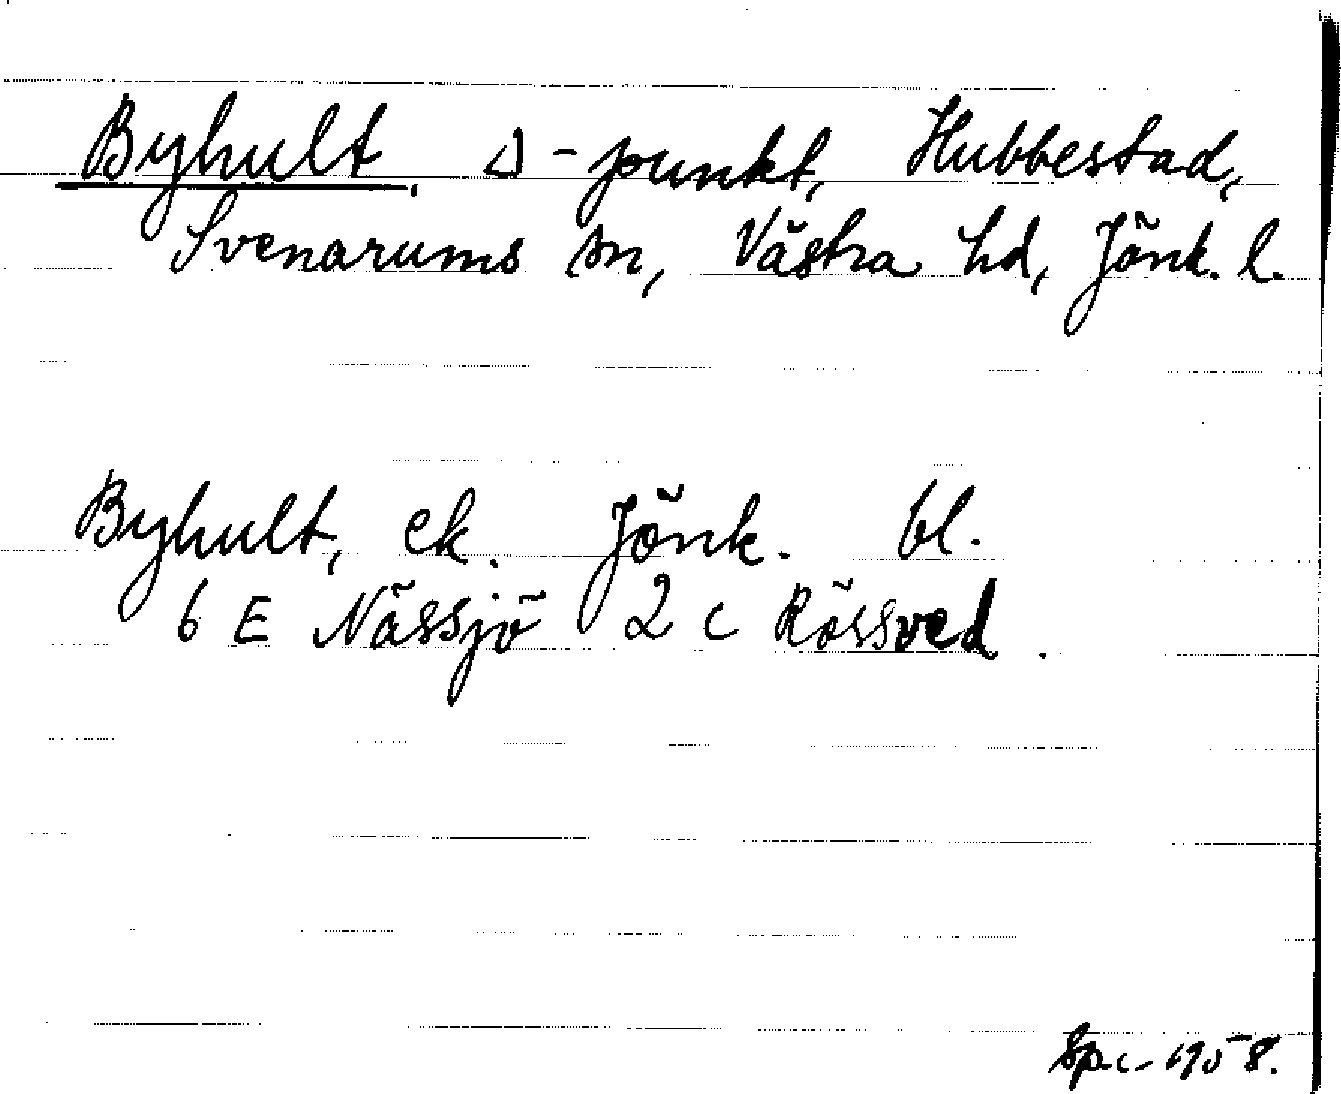 Byhult, Δ-punkt, Hubbestad,
Svenarums sn, Västra hd, Jönk. l.
Byhult, ek. Jönk. bl.
6 E Nässjö 2 c Rössved.
1958.